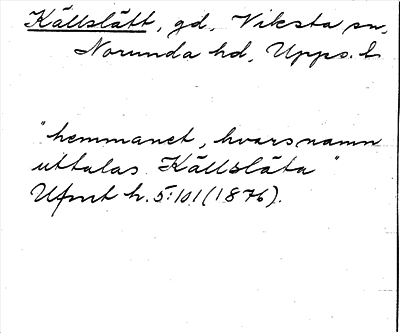 Källslätt, gd, Viksta sn,
Norunda hd, Upps. l.
"hemmanet, hvars namn
uttalas Källsläta"
Ufmt h. 5:101 (1876).